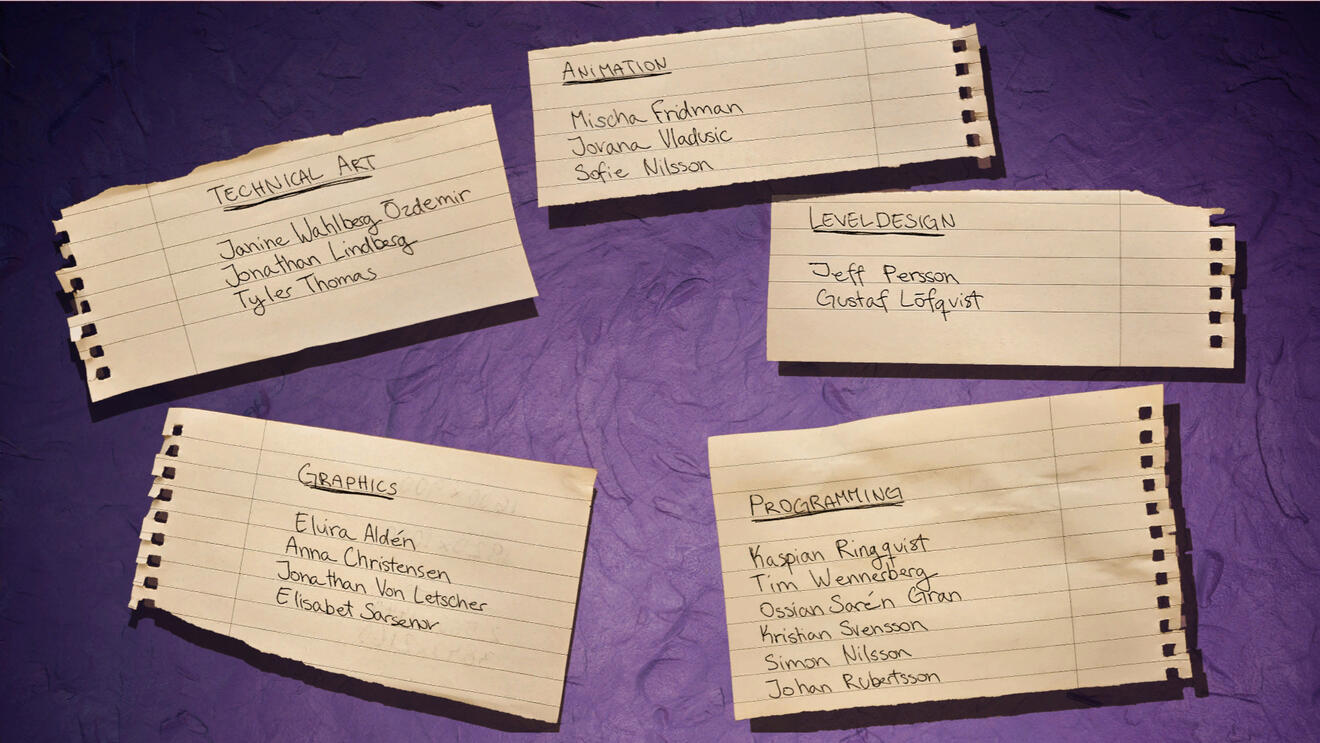 ANIMATION
Mischa Fridman
Jovana Vladusic
Sofie Nilsson
TECHNICAL ART
Janine Wahlberg Özdemir
Jonathan Lindberg
Tyler Thomas
LEVELDESIGN
Jeff Persson
Gustaf Löfqvist
GRAPHICS
Elvira Aldén
Anna Christensen
Jonathan Von Letscher
Elisabet Sarsenov
PROGRAMMING
Kaspian Ringqvist
Tim Wennerberg
Ossian Sarén Gran
Kristian Svensson
Simon Nilsson
Johan Robertsson